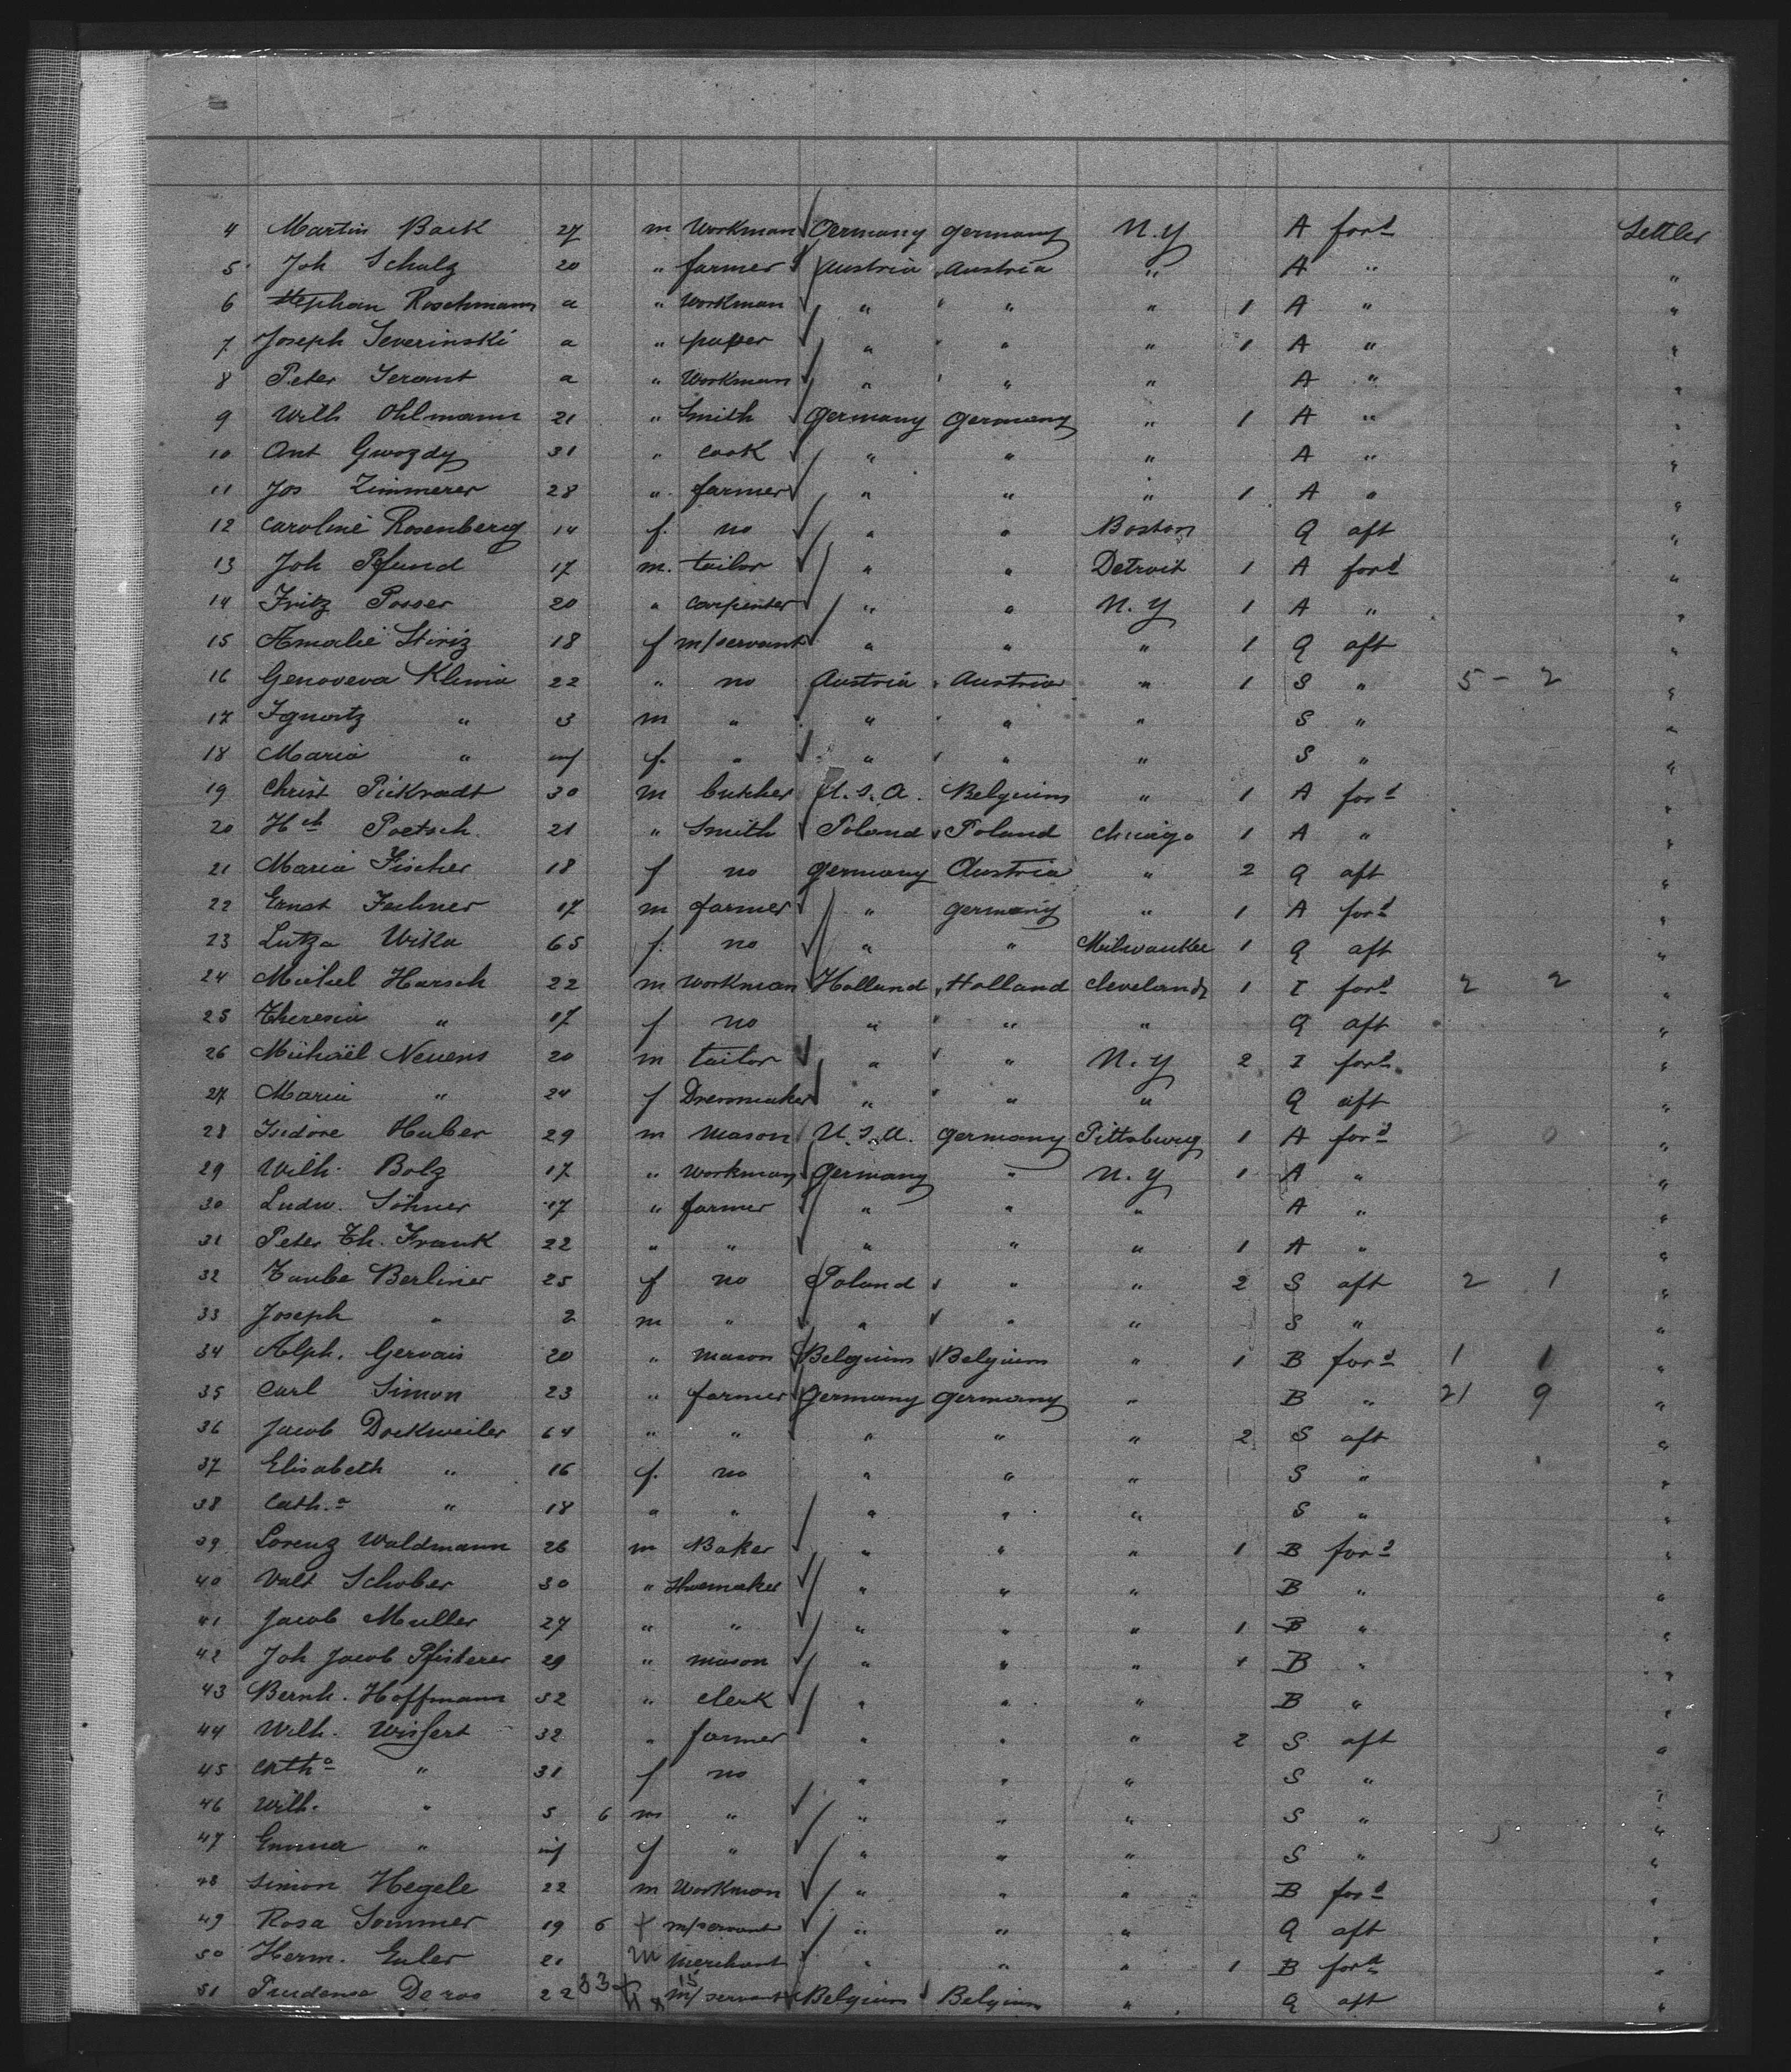 4 Martin Back 27 m Workman Germany Germany N.Y A ford Settler
5 Joh Schulz 20 " farmer Austria Austria " A " "
6 Stephan Roschmann a " Workman " " " 1 A " "
7 Joseph Severinski a " " " " 1 A " "
8 Peter Serant a " Workman " " " A " "
9 Wilh Ohlmann 21 " Smith Germany Germany " 1 A " "
10 Ant Gwozdy 31 " cook " " " A " "
11 Jos Zimmerer 28 " farmer " " " 1 A " "
12 Caroline Rosenberg 14 f. no " " Boston Q aft "
13 Joh Pfund 17 m. tailor " " Detroit 1 A ford "
14 Fritz Posser 20 " carpenter " " N.Y 1 A " "
15 Amalie Stiriz 18 f m/servant " " " 1 Q aft "
16 Genoveva Klima 22 " no Austria Austria " 1 S " 5 - 2 "
17 Ignatz " 3 m " " " " S " "
18 Maria " inf f. " " " " S " "
19 Christ Pickradt 30 m butcher U.S.A. Belgium " 1 A ford "
20 Hch Poetsch 21 " Smith Poland Poland Chicago 1 A " "
21 Maria Fischer 18 f no Germany Austria " 2 Q aft "
22 Ernst Fechner 17 m farmer " Germany " 1 A ford "
23 Lutza Wika 65 f. no " " Milwaukee 1 Q aft "
24 Michel Harsch 22 m Workman Holland Holland Cleveland 1 I ford 2 2 "
25 Theresia " 17 f no " " " Q aft "
26 Michaël Neuens 20 m tailor " " N.Y 2 I ford "
27 Maria " 24 f Dressmaker " " " Q aft "
28 Isidore Huber 29 m Mason U.S.A. Germany Pittsburg 1 A ford 2 0 "
29 Wilh. Bolz 17 " Workman Germany " N.Y 1 A " "
30 Ludw. Söhner 17 " farmer " " " A " "
31 Peter Th. Frank 22 " " " " " 1 A " "
32 Taube Berliner 25 f no Poland " " 2 S aft 2 1 "
33 Joseph " 2 m " " " " S " "
34 Alph. Gervais 20 " Mason Belgium Belgium " 1 B ford 1 1 "
35 Carl Simon 23 " farmer Germany Germany " B " 21 9 "
36 Jacob Dockweiler 64 " " " " " 2 S aft "
37 Elisabeth " 16 f. no " " " S " "
38 Cath.a " 18 " " " " " S " "
39 Lorenz Waldmann 26 m Baker " " " 1 B ford "
40 Valt Schober 30 " Shoemaker " " " B " "
41 Jacob Muller 27 " " " " " 1 B " "
42 Joh Jacob Pfisterer 29 " mason " " " 1 B " "
43 Bernh. Hoffmann 32 " clerk " " " B " "
44 Wilh. Wissert 32 " farmer " " " 2 S aft "
45 Catha " 31 f no " " " S " "
46 Wilh. " 5 6 m " " " " S " "
47 Emma " inf f " " " " S " "
48 Simon Hegele 22 m Workman " " " B ford "
49 Rosa Sommer 19 6 f m/servant " " " Q aft "
50 Herm. Euler 21 m Merchant " " " 1 B ford "
51 Deroo 22 33 15 m/servant Belgium Belgium " Q aft "